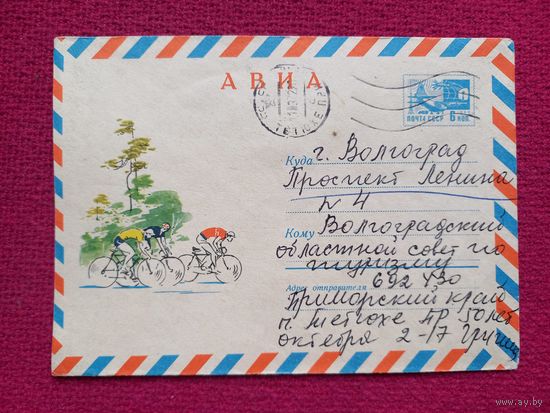 АВИА
ПОЧТА СССР 6 КОП.
Куда г. Волгоград
Проспект Ленина
N 4
Кому Волгоградский
областной совет по
туризму
Адрес отправителя 692430
Приморский край
п. Тетюхе ПР 50 лет
октября 2-17
www.ay.by